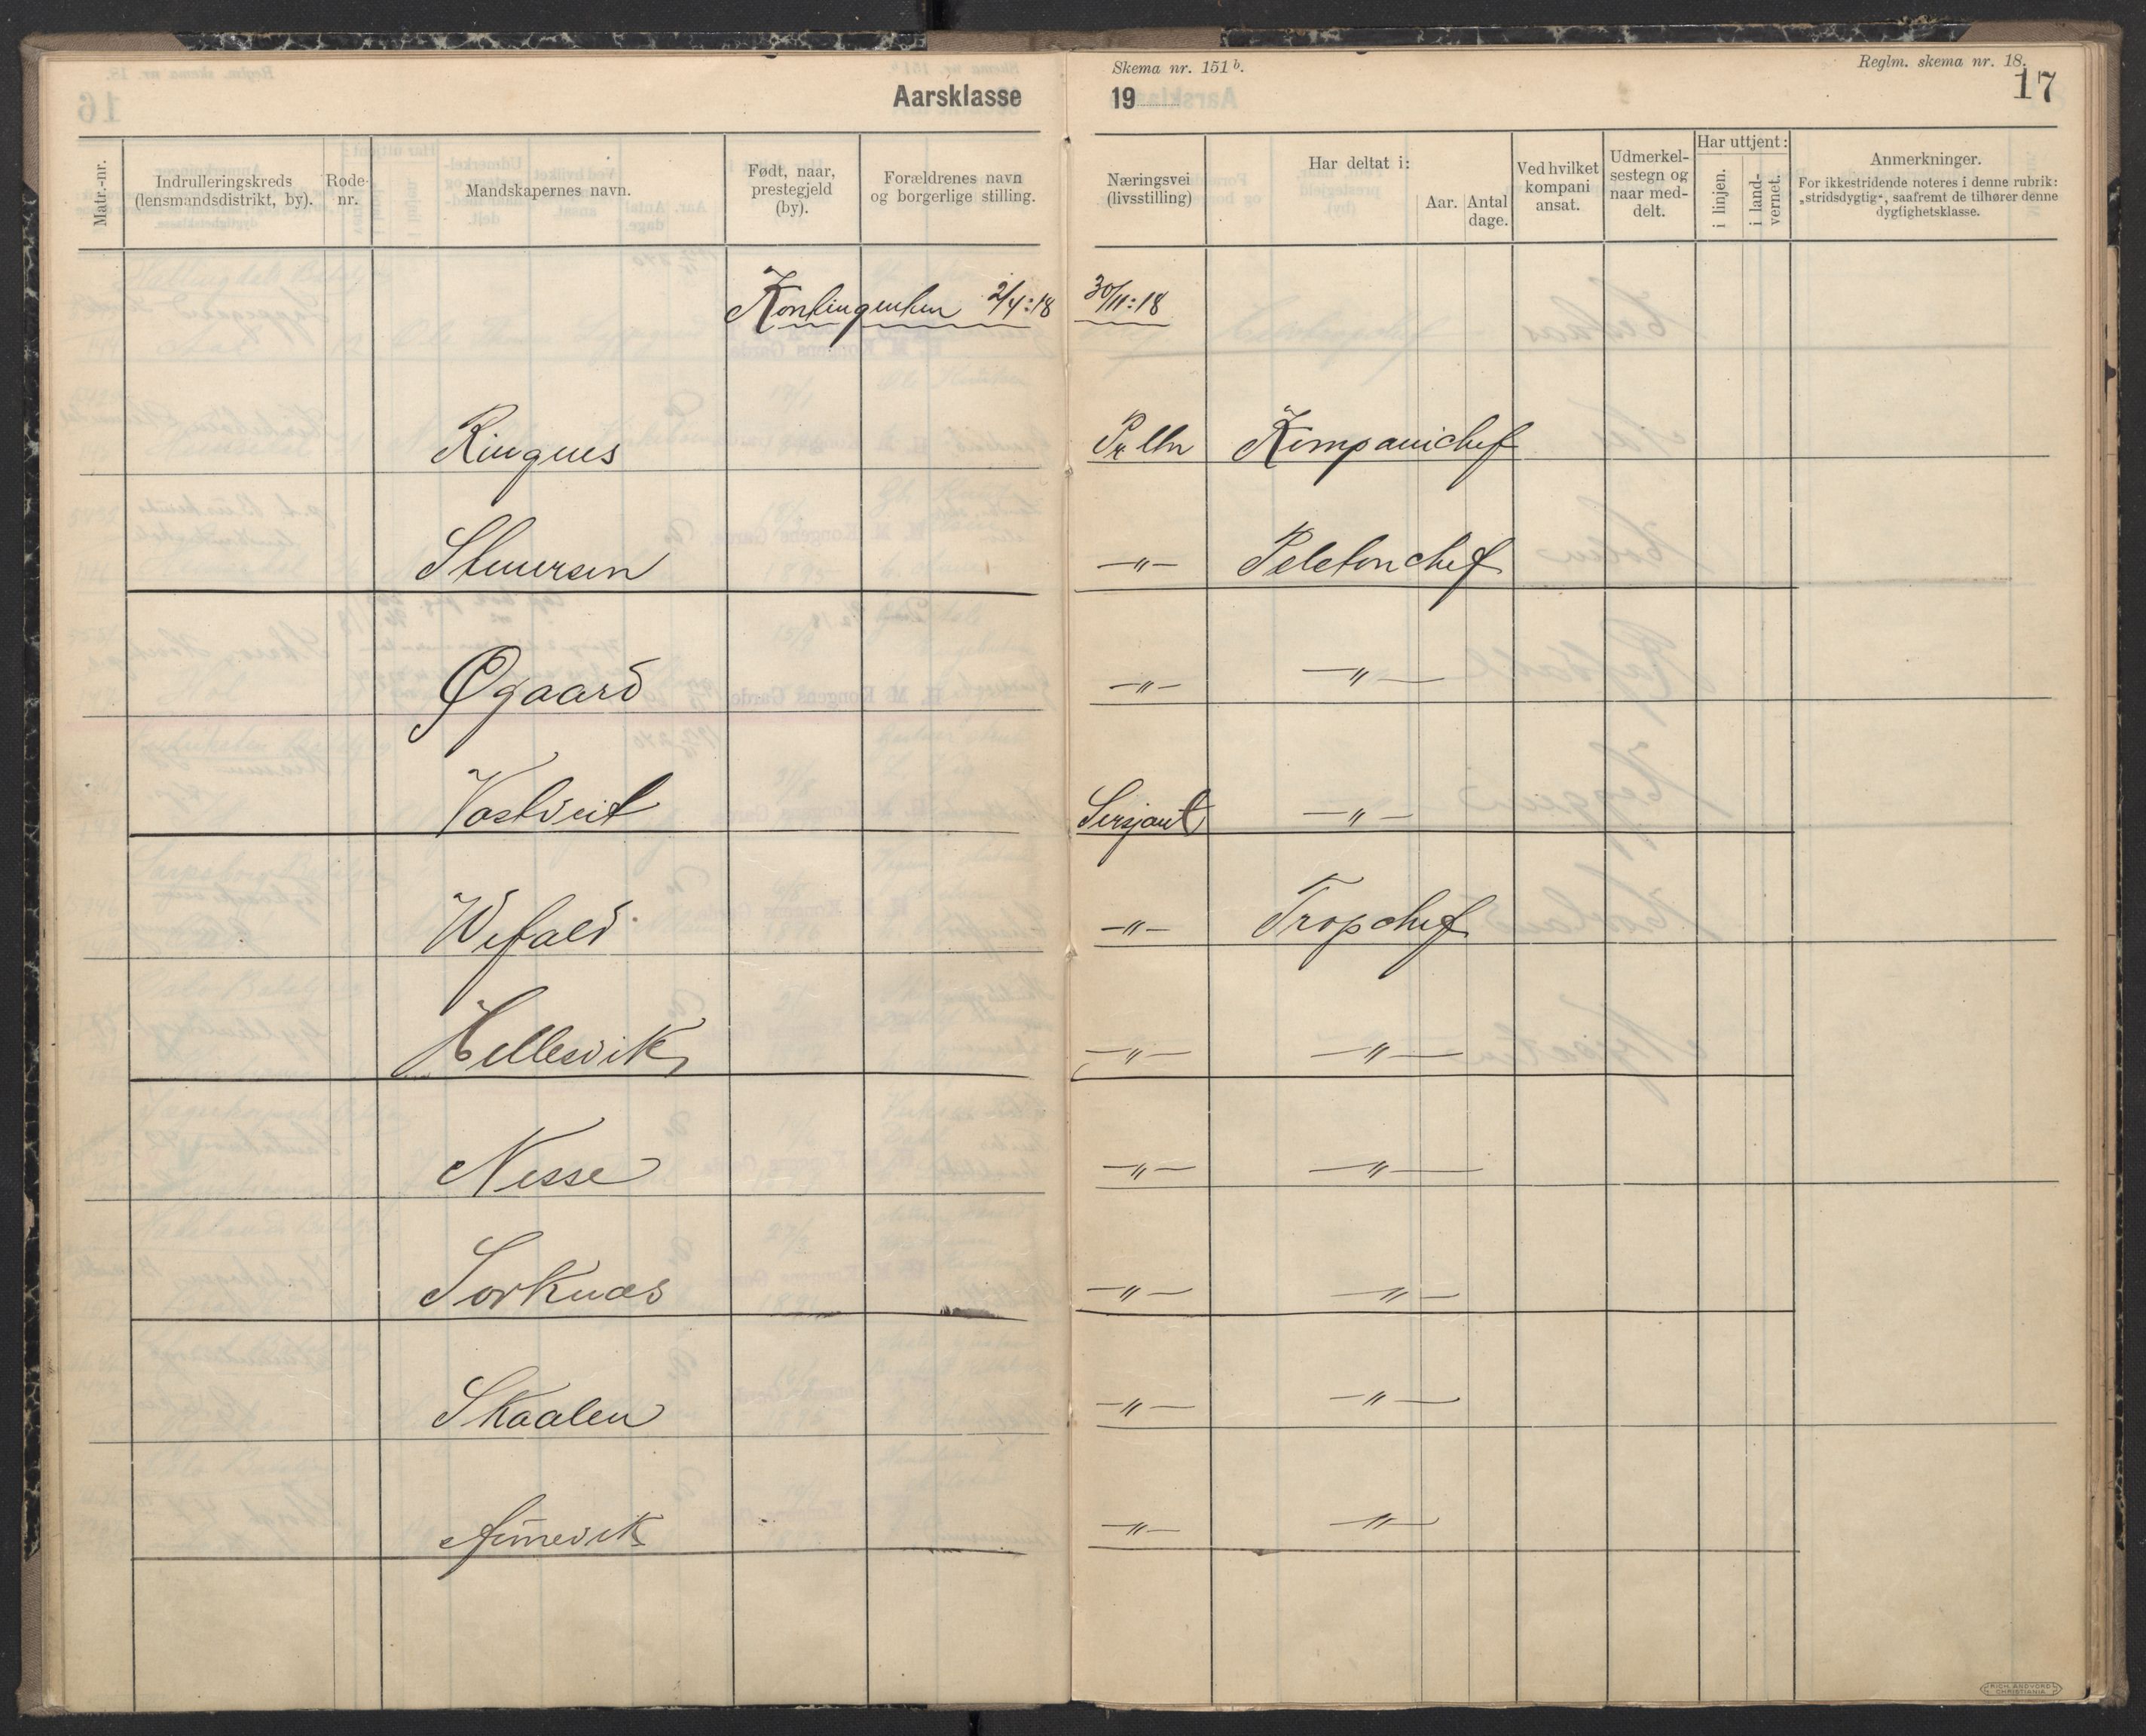 Skema nr. 151b.
Reglm. skema nr. 18.
17
Aarsklasse 19
Matr.-nr.
Indrulleringskreds (lensmandsdistrikt, by).
Rode-nr.
Mandskapernes navn.
Født, naar, prestegjeld (by).
Forældrenes navn og borgerlige stilling.
Næringsvei (livsstilling)
Har deltat i:
Aar.
Antal dage.
Ved hvilket kompani ansat.
Udmerkel-sestegn og naar med-delt.
Har uttjent:
i linjen.
i land-vernet.
Anmerkninger.
For ikkestridende noteres i denne rubrik: „stridsdygtig“, saafremt de tilhører denne dygtighetsklasse.
Kontingenten 2/4:18 30/11:18
Ringnes Pr ltn Kompanichef
Steuersen —"— Peletonchef
Øgaard —"— —"—
Vastveit Sersjant —"—
Wefald —"— Tropchef
Hellesvik —"— —"—
Nesse —"— —"—
Sorknæs —"— —"—
Skaalen —"— —"—
—"— —"—
RICH. ANDVORD
CHRISTIANIA